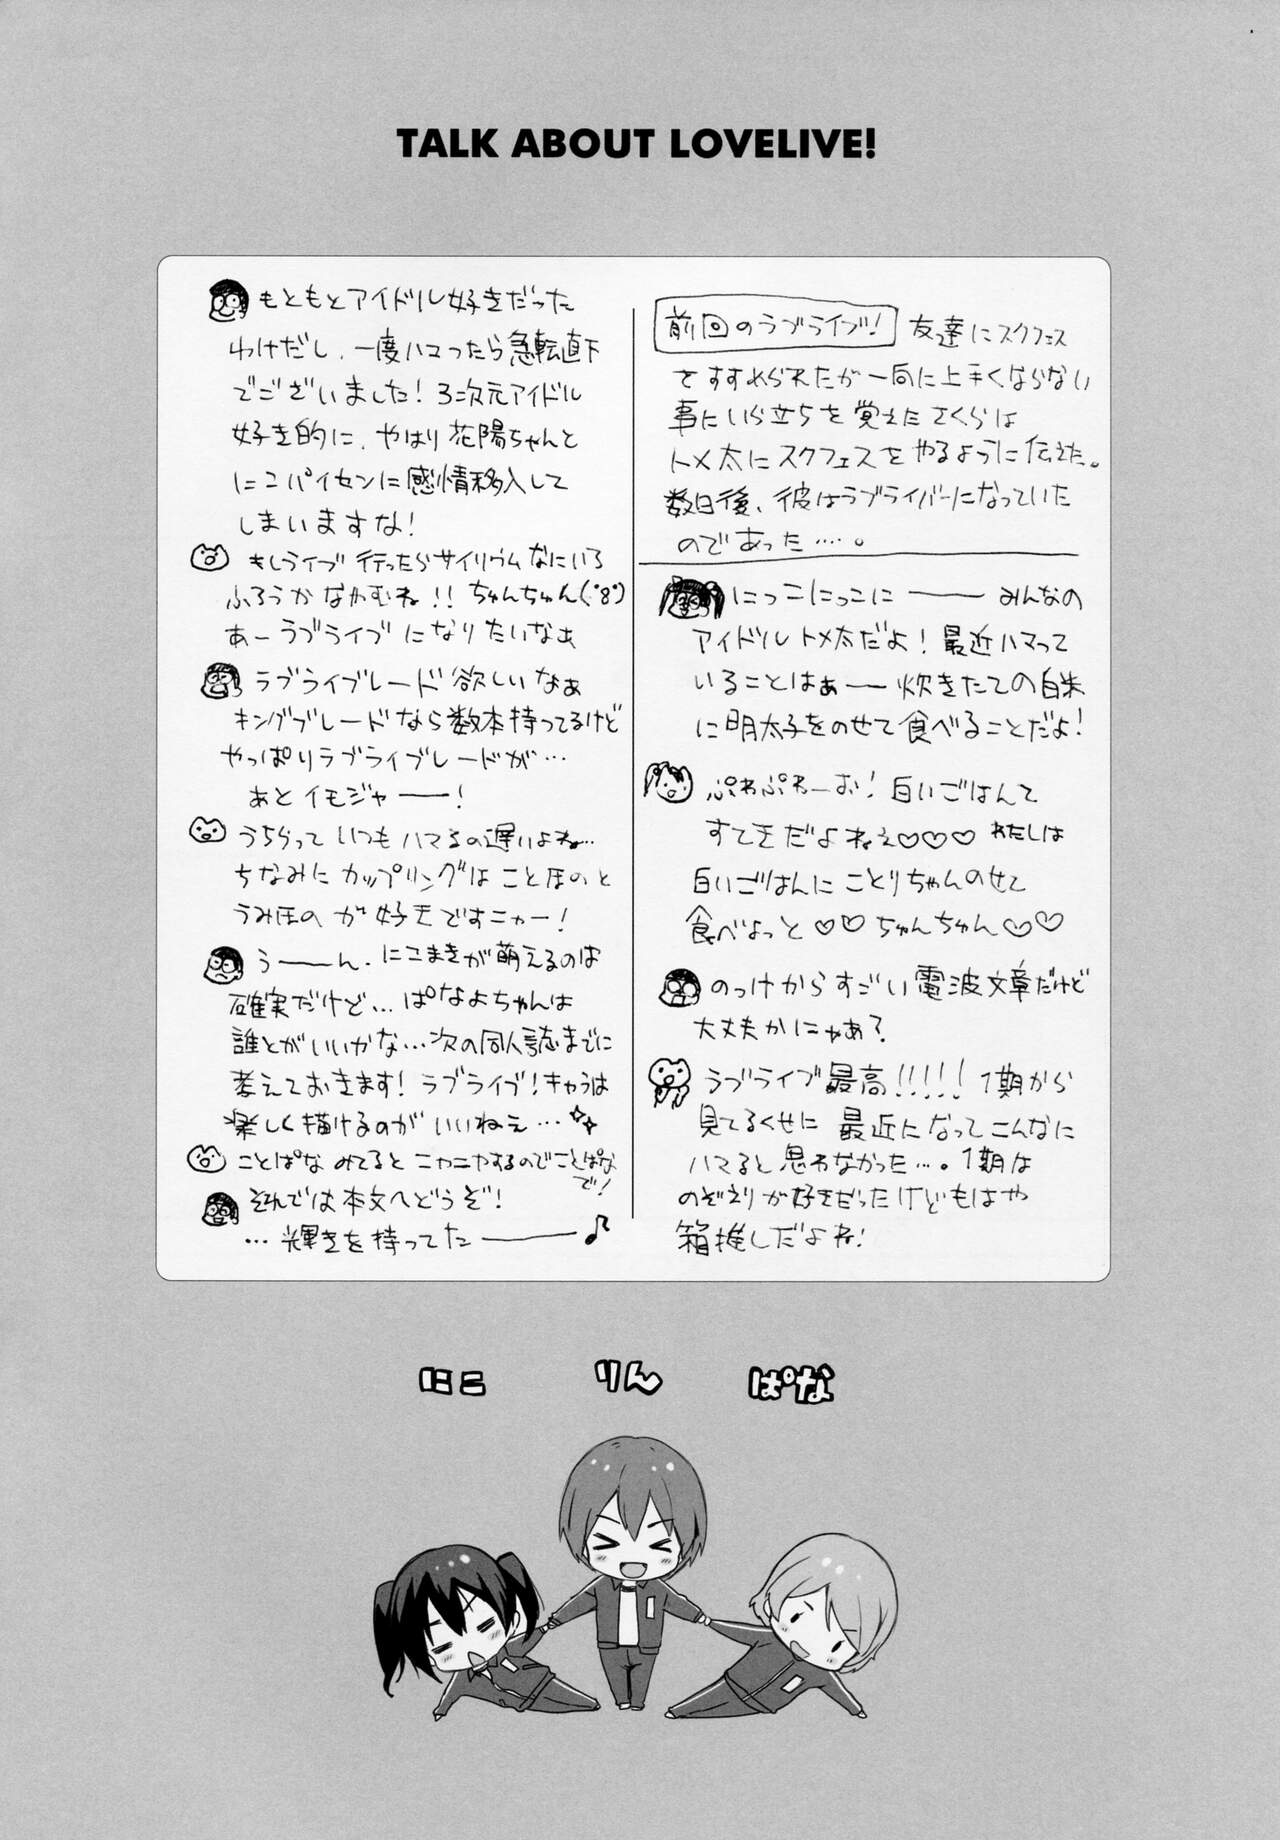 TALK ABOUT LOVELIVE!
前回のラブライブ! 友達にスクフェス
をすすめられたが一向に上手くならない
事にいら立ちを覚えたさくらは
トメ太にスクフェスをやるように伝えた。
数日後、彼はラブライバーになっていた
のであった…。
にっこにっこに―― みんなの
アイドルトメ太だよ!最近ハマって
いることはぁー炊きたての白米
に明太子をのせて食べることだよ!
ぷわぷわーお!白いごはんて
すてきだよねぇ♡♡♡ わたしは
白いごはんにことりちゃんのせて
食べよっと♡♡ちゅんちゅん♡♡
のっけからすごい電波文章だけど
大丈夫かにゃあ?
ラブライブ最高!!!!! 1期から
見てるくせに最近になってこんなに
ハマると思わなかった…。1期は
のぞえりが好きだったけどもはや
箱推しだよね!
もともとアイドル好きだった
わけだし、一度ハマったら急転直下
でございました!3次元アイドル
好き的に、やはり花陽ちゃんと
にこパイセンに感情移入して
しまいますな!
もしライブ行ったらサイリウムなにいろ
ふろうかなやむね!!ちゅんちゅん(・8・)
あーラブライブになりたいなぁ
ラブライブレード欲しいなぁ
キングブレードなら数本持ってるけど
やっぱりラブライブレードが…
あとイモジャ――!
うちらっていつもハマるの遅いよね…
ちなみにカップリングはことほのと
うみほのが好きですニャー!
う――ん、にこまきが萌えるのは
確実だけど…ぱなよちゃんは
誰とがいいかな…次の同人誌までに
考えておきます!ラブライブ!キャラは
楽しく描けるのがいいねぇ…
ことぱなみてるとニヤニヤするのでことぱな
で!
それでは本文へどうぞ!
…輝きを持ってた――♪
にこ りん ぱな